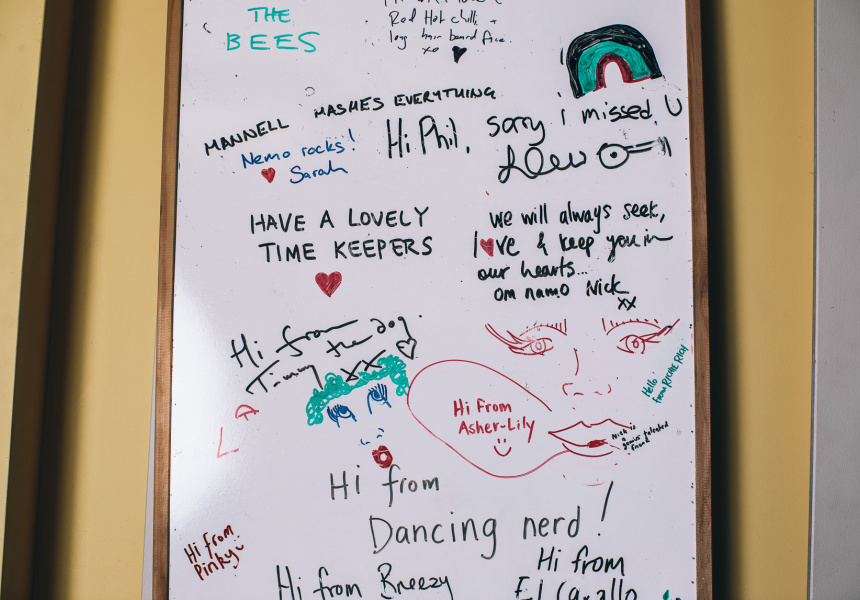 THE
BEES
Red Hot chilli +
long hair beard face.
xo
MANNELL MASHES EVERYTHING
Nemo rocks!
Sarah
Hi Phil, sorry i missed U
HAVE A LOVELY
TIME KEEPERS
we will always seek,
love & keep you in
our hearts...
om namo Nick
xx
Hi from
Timmy the dog.
xx
LA
Hi From
Asher-Lily
Hello
from RICHIE RICH
Nick is
a
genius talented
friend
Hi from
Dancing nerd!
Hi from
Pinky
Hi from Breezy
Hi from
El Caballo